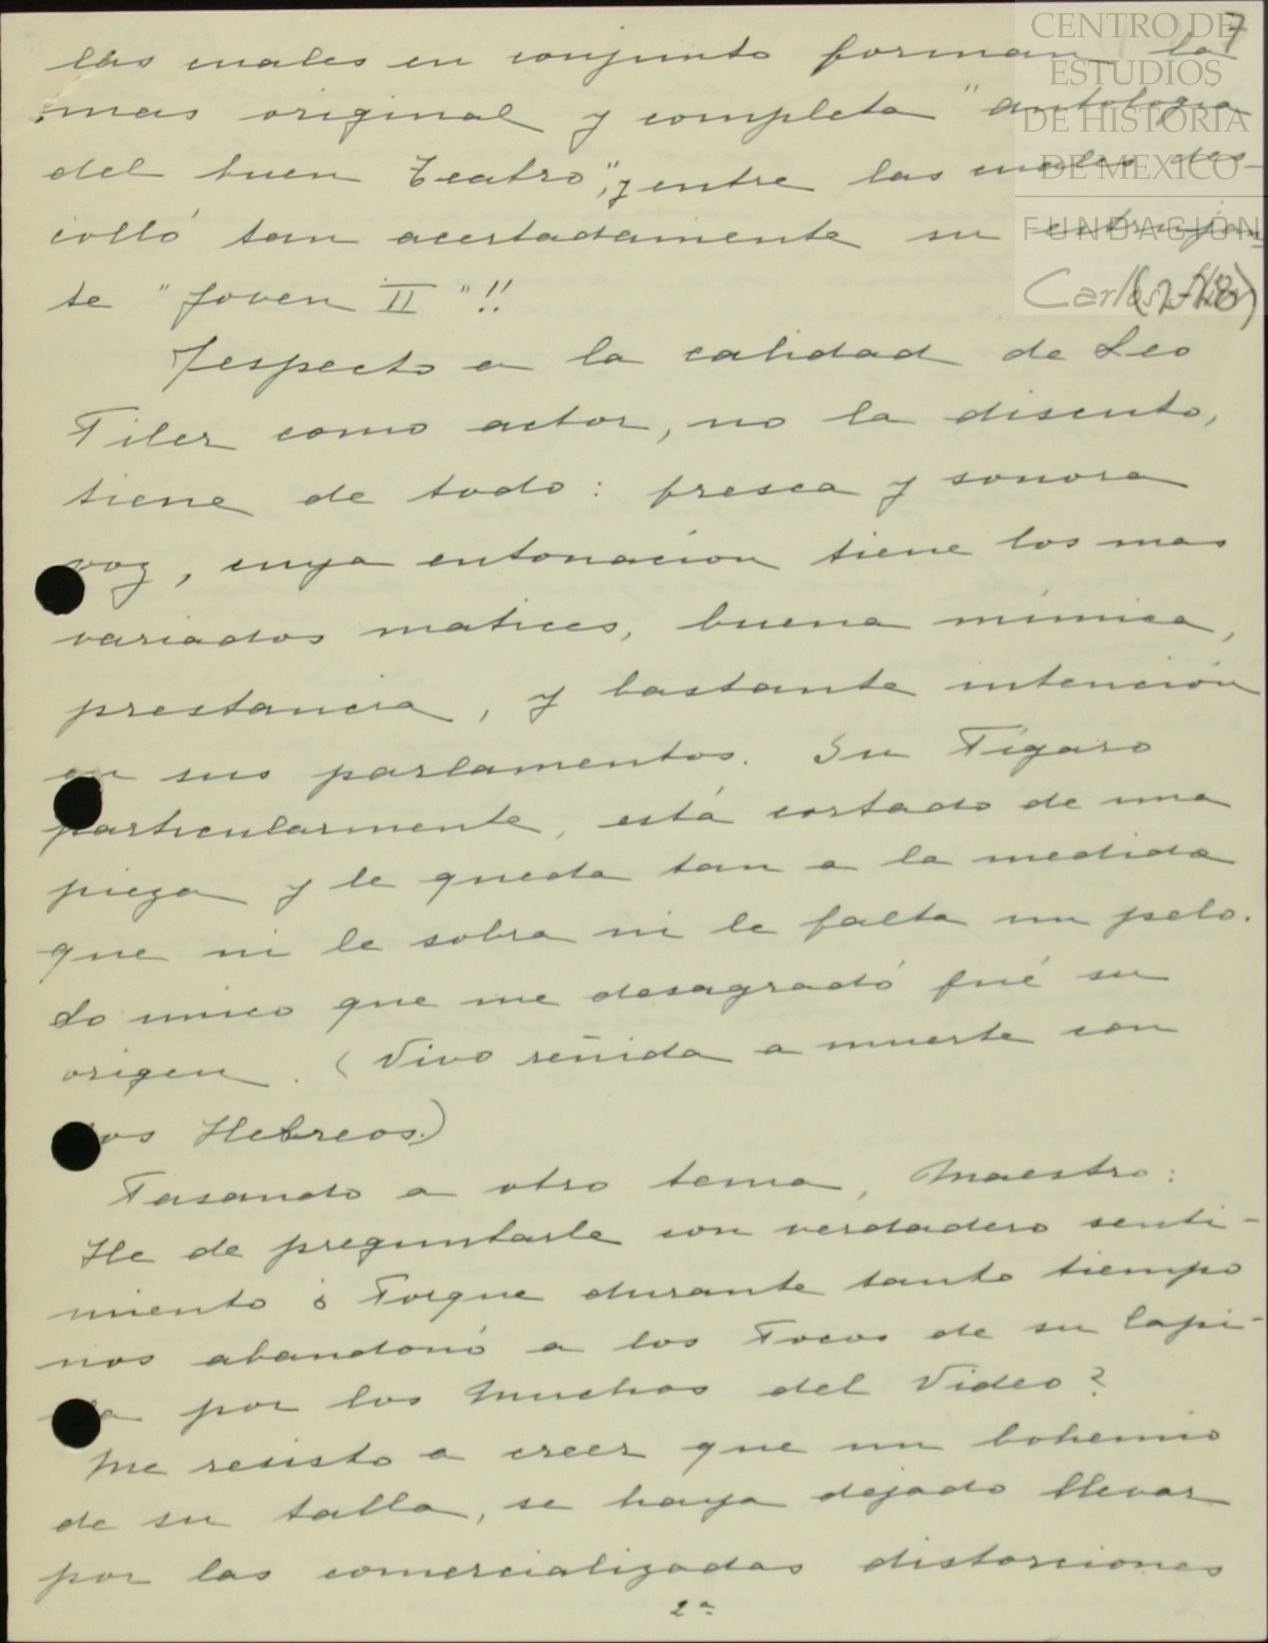 7
CENTRO DE
ESTUDIOS
DE HISTORIA
DE MEXICO
FUNDACIÓN
Carlos Slim
(2-28)
las cuales en conjunto forman la
mas original y completa "antologia
del buen Teatro", y entre las cuales des-
colló tan acertadamente su estrujan
te "Joven II"!!
Respecto a la calidad de Leo
Filer como actor, no la discuto,
tiene de todo: fresca y sonora
voz, cuya entonacion tiene los mas
variados matices, buena mímica,
prestancia, y bastante intención
en sus parlamentos. Su Fígaro
particularmente, está cortado de una
pieza y le queda tan a la medida
que ni le sobra ni le falta un pelo.
Lo unico que me desagradó fué su
origen. (Vivo reñida a muerte con
los Hebreos.)
Pasando a otro tema, Maestro:
He de preguntarle con verdadero senti-
miento ¿Porque durante tanto tiempo
nos abandonó a los Pocos de su Capi-
lla por los Muchos del Video?
Me resisto a creer que un bohemio
de su talla, se haya dejado llevar
por las comercializadas distorciones
2ª